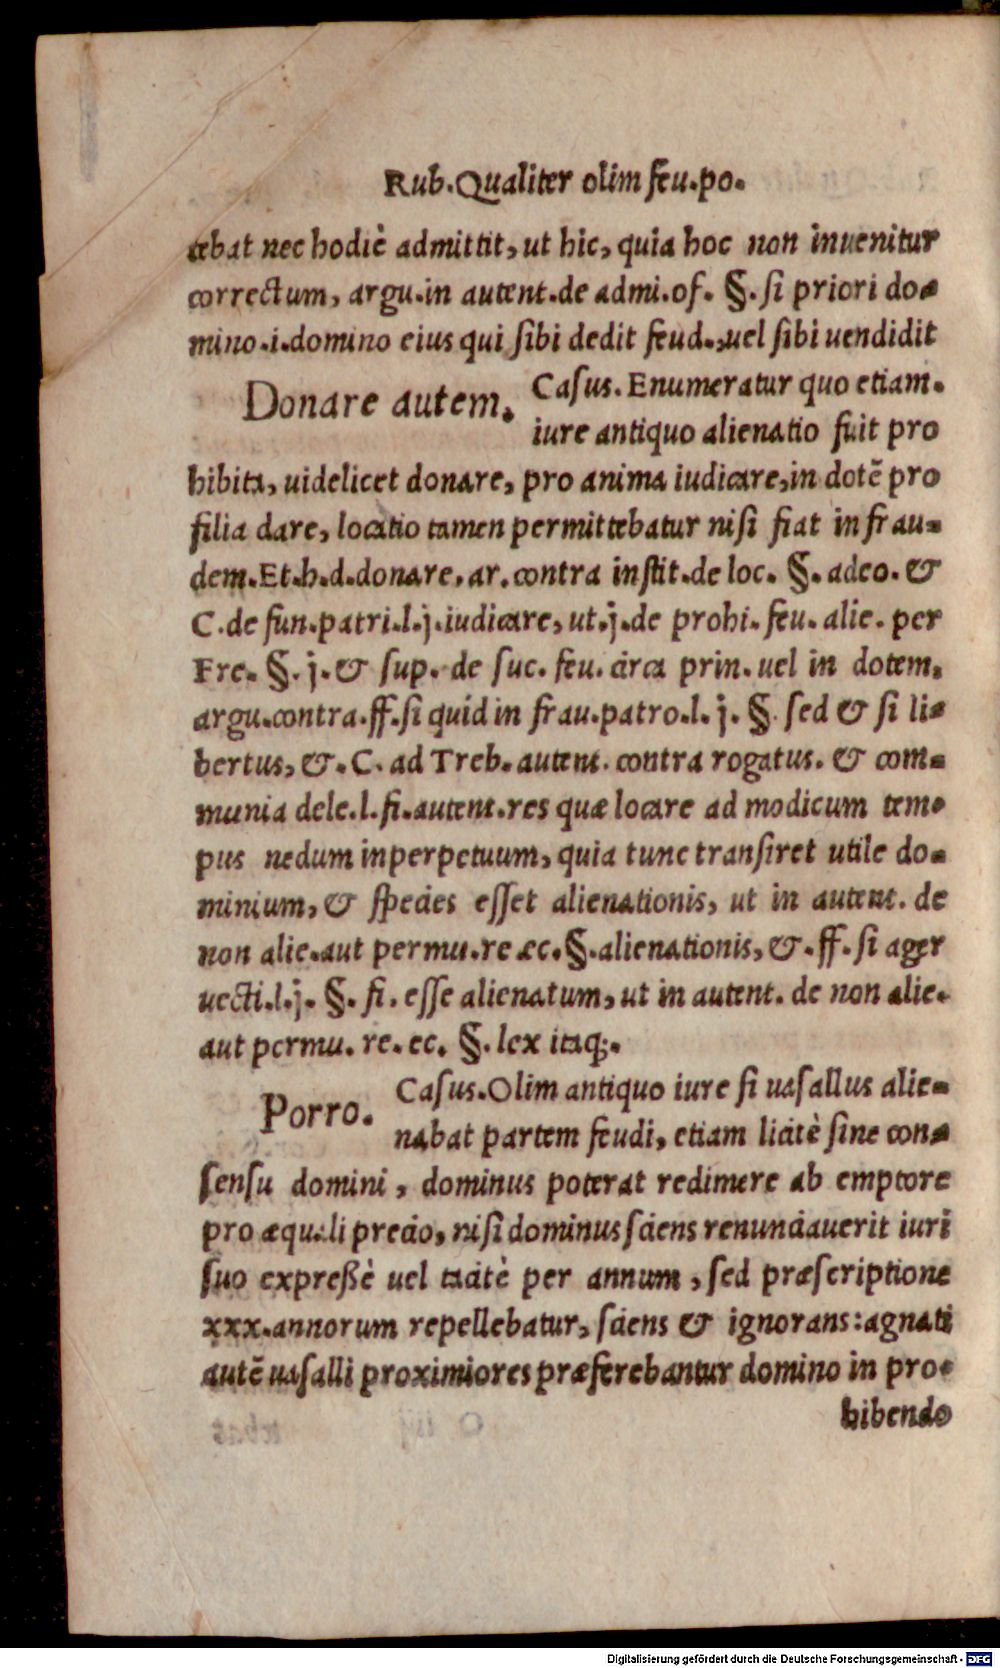 Rub.Qualiter olim feu.po.
tebat nec hodiè admittit, ut hic, quia hoc non inuenitur
correctum, argu.in autent.de admi.of. §. si priori do-
mino.i.domino eius qui sibi dedit feud., uel sibi uendidit
Donare autem. Casus. Enumeratur quo etiam.
iure antiquo alienatio fuit pro
hibita, uidelicet donare, pro anima iudicare, in dotē pro
filia dare, locatio tamen permittebatur nisi fiat in frau-
dem.Et.h.d.donare.ar.contra instit.de loc. §. adeo. &
C.de fun.patri.l.j.iudicare, ut.j.de prohi.feu.alie.per
Fre. §. j. & sup. de suc. feu. circa prin. uel in dotem.
argu.contra.ff.si quid in frau.patro.l. j. §. sed & si li-
bertus, &. C. ad Treb. autent. contra rogatus. & com-
munia dele.l.fi.autent.res quæ locare ad modicum tem-
pus nedum inperpetuum, quia tunc transiret utile do-
minium, & species esset alienationis, ut in autent. de
non alie.aut permu.re ec.§.alienationis, &. ff. si ager
uecti.l.j. §. fi. esse alienatum, ut in autent. de non alie.
aut permu. re. ec. §. lex itaq;.
Porro. Casus.Olim antiquo iure si uasallus alie-
nabat partem feudi, etiam licitè sine con-
sensu domini, dominus poterat redimere ab emptore
pro æquali precio, nisi dominus sciens renunciauerit iuri
suo expreßè uel tacitè per annum, sed præscriptione
xxx.annorum repellebatur, sciens & ignorans: agnati
autē uasalli proximiores præferebantur domino in pro-
hibendo
Digitalisierung gefördert durch die Deutsche Forschungsgemeinschaft - DFG